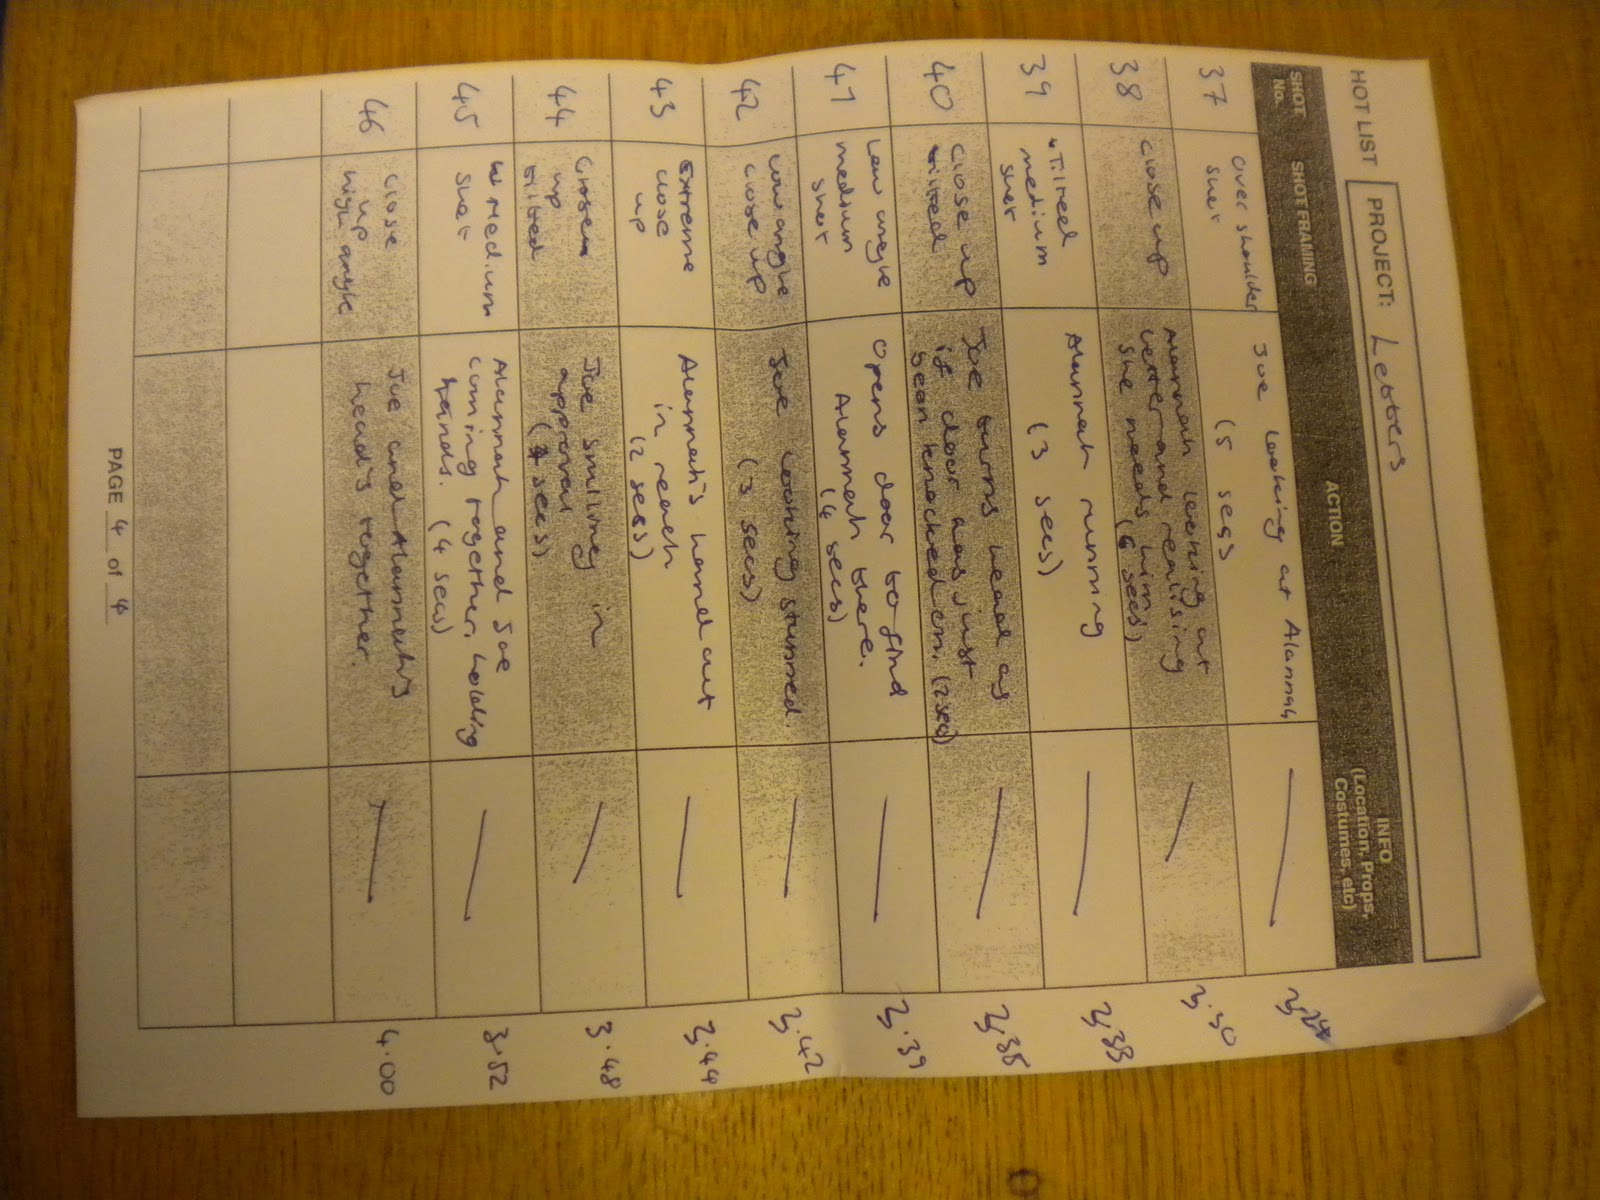 HOT LIST
PROJECT: Letters
SHOT No.
SHOT FRAMING
ACTION
INFO
(Location, Props,
Costumes, etc)
37
Over shoulder
shot
Joe looking at Alannah
(5 secs
3.24
38
close up
Alannah looking at
letter and realising
she needs him.
(6 secs)
3.30
39
Tilted
medium
shot
Alannah running
(3 secs)
3.33
40
close up
tilted
Joe turns head as
if door has just
been knocked on. (2 secs)
3.35
41
Low angle
medium
shot
Opens door to find
Alannah there.
(4 secs)
3.39
42
Low angle
close up
Joe looking stunned.
(3 secs)
3.42
43
Extreme
close
up
Alannah's hand out
in reach
(2 secs)
3.44
44
Close
up
tilted
Joe smiling in
approval
(4 secs)
3.48
45
Medium
shot
Alannah and Joe
coming together, holding
hands. (4 secs)
3.52
46
close
up
high angle
Joe and Alannah's
head's together.
4.00
PAGE 4 of 4